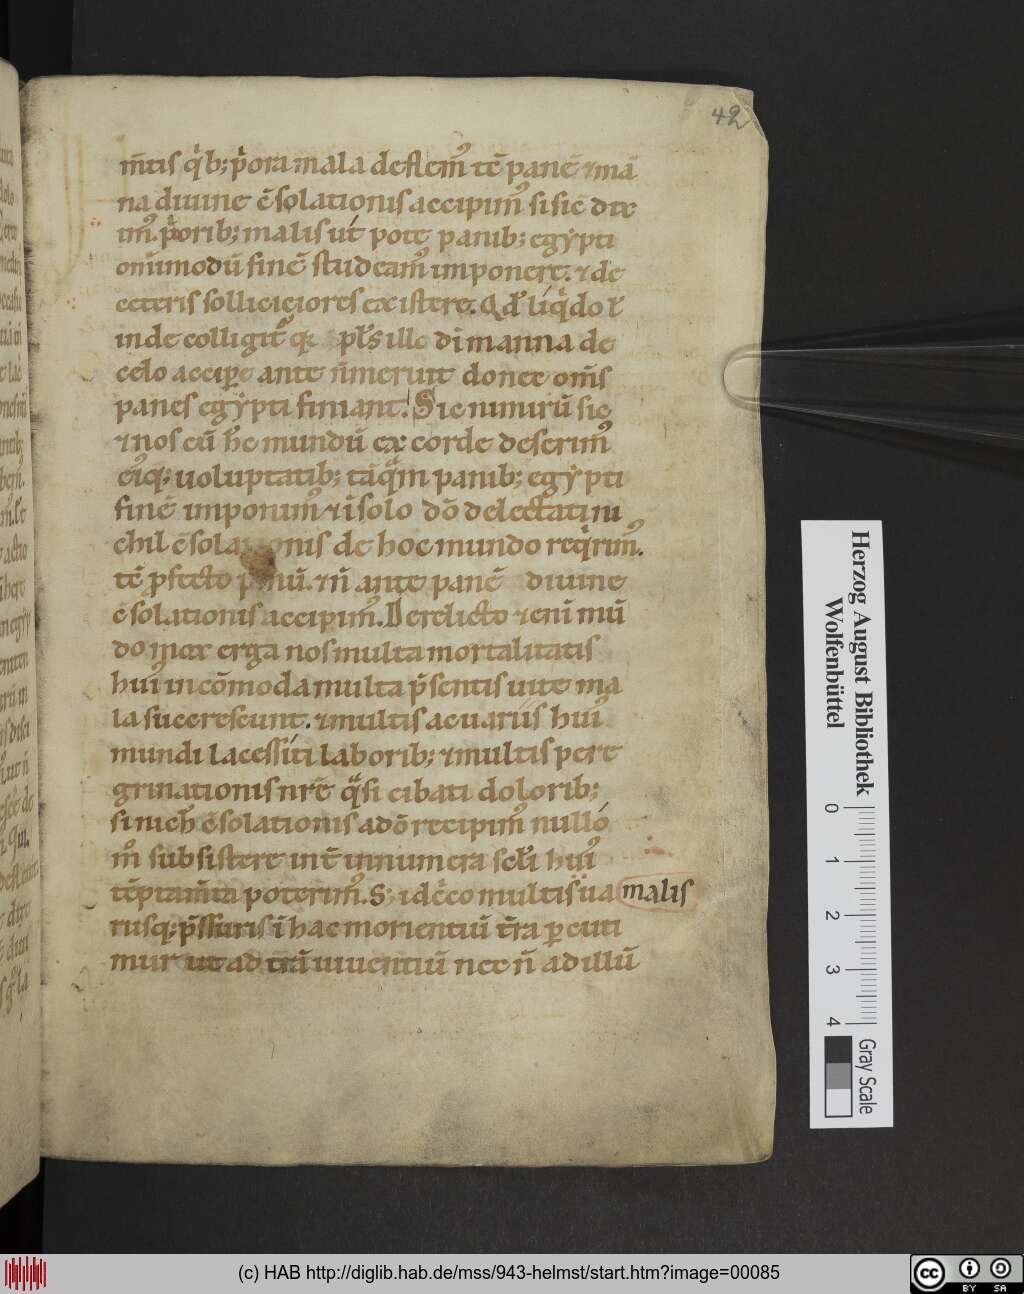 42
m̄tis q̇b; p̄ora mala deflem᷒ tē panē ⁊ mā
na diuine c̄solationis accipim᷒ si sic dic
im᷒. p̄orib; malis ut pote panib; egẏpti
om̄imodū finē studeam᷒ imponere. ⁊ de
ceteris solliciciores existere. Qd̄
inde colligit᷒ pl̄s ille di manna de
celo accipe ante n̄ meruit donec om̄s
panes egẏpti finiant. Sic nimirū sic
⁊ nos cū h̄c mundū ex corde deserim᷒
ei᷒q; uoluptatib; tāqͣm panib; egẏpti
finē imponim᷒ ⁊ ī solo dō delectati ni
chil c̄sola onis de hoc mundo req̇rim᷒.
tē pfecto ⁊ n̄ ante panē diuine
c̄solationis accipim᷒. Derelicto ⁊enī mū
do mox erga nos multa mortalitatis
hui᷒ incōmoda multa p̄sentis uite ma
la succrescunt. ⁊ multis acuariis hui᷒
mundi lacessiti laborib; ⁊ multis pere
grinationis nr̄e qͣsi cibati dolorib;
si nich̄ c̄solationis a dō recipim᷒ nullo
m̄ subsistere int̄ innumera scl̄i hui᷒
tēptam̄ta poterim᷒. S; idc̄co multis ua malis
risq; p̄ssuris ī hac morientiū t̄ra p cuti
mur ut ad t̄rā uiuentiū nec n̄ ad illū
Herzog August Bibliothek
Wolfenbüttel
0 1 2 3 4
Gray Scale
(c) HAB http://diglib.hab.de/mss/943-helmst/start.htm?image=00085
cc BY SA